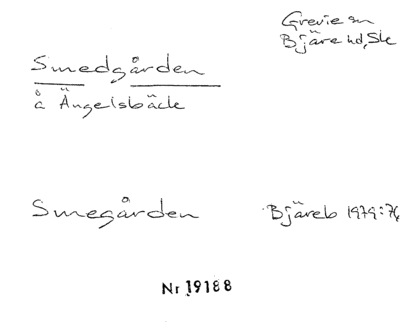 Grevie sn
Bjäre hd, Sk
Smedgården
å Ängelsbäck
Smegården
Bjäreb 1979:76
Nr 19188